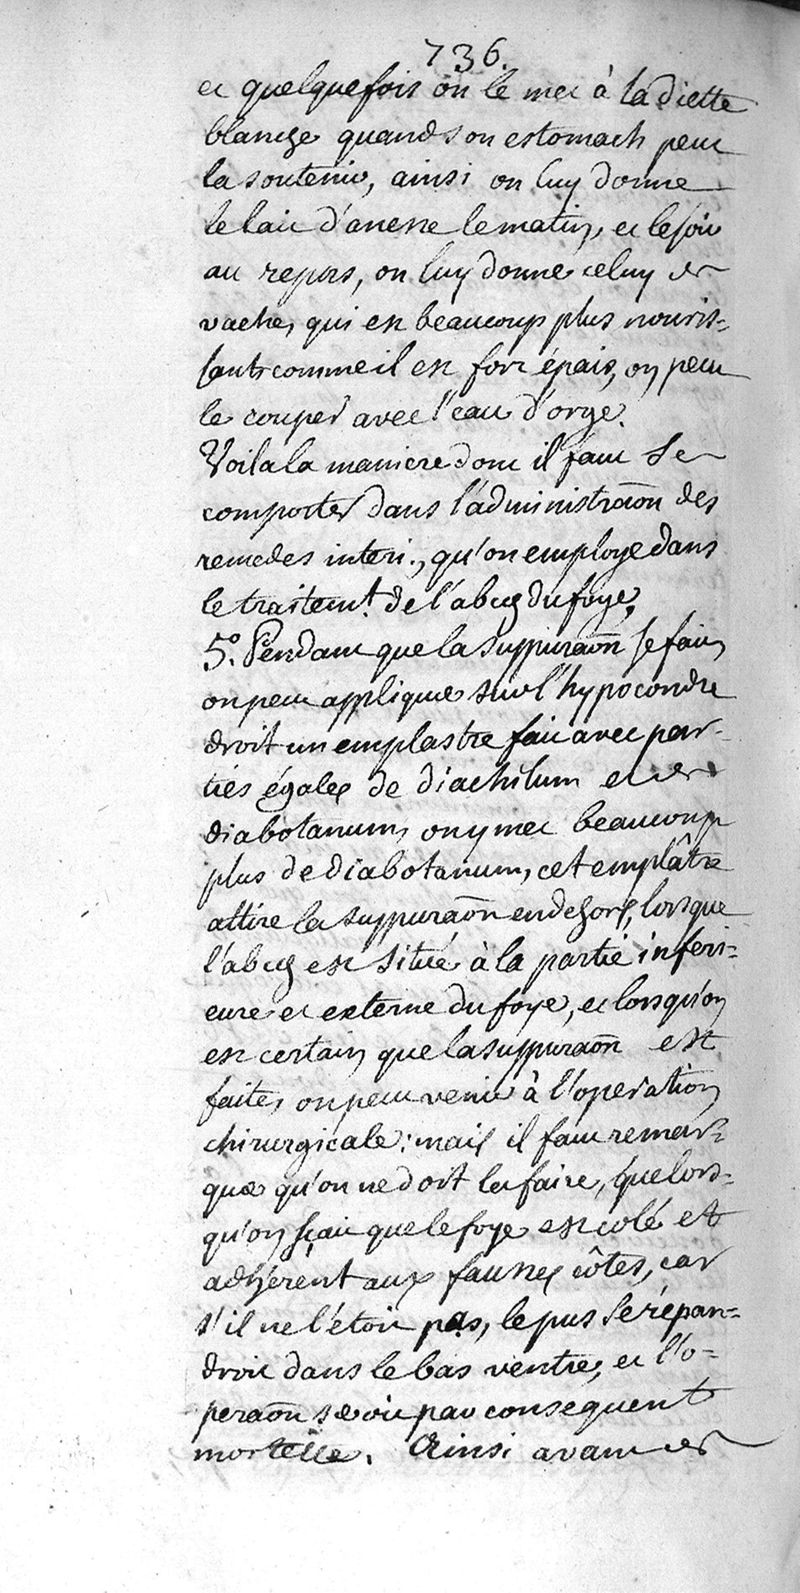 736.
et quelquefois on le met à la diette
blanche quand son estomach peut
la soutenir, ainsi on luy donne
le lait d'anesse le matin, et le soir
au repas, on luy donne celuy de
vache, qui est beaucoup plus nouris-
sant comme il est fort épais, on peut
le couper avec l'eau d'orge.
Voila la maniere dont il faut se
comporter dans l'administraõn des
remedes inter., qu'on employe dans
le traitemt. de l'abcès du foye.
5o. Pendant que la suppuraõn se fait,
on peut appliquer sur l'hypocondre
droit un emplastre fait avec par-
ties égales de diachilum et de
diabotanum, on y met beaucoup
plus de diabotanum, cet emplâtre
attire la suppuraõn en dehors, lorsque
l'abcès est situé à la partie inferi-
eure et externe du foye, et lorsqu'on
est certain que la suppuraõn est
faite, on peut venir à l'operation
chirurgicale: mais il faut remar-
quer qu'on ne doit la faire, que lors-
qu'on sçait que le foye est colé et
adhérent aux fausses côtes, car
s'il ne l'étoit pas, le pus se répan-
droit dans le bas ventre, et l'o-
peraõn seroit par consequent
mortelle. Ainsi avant de